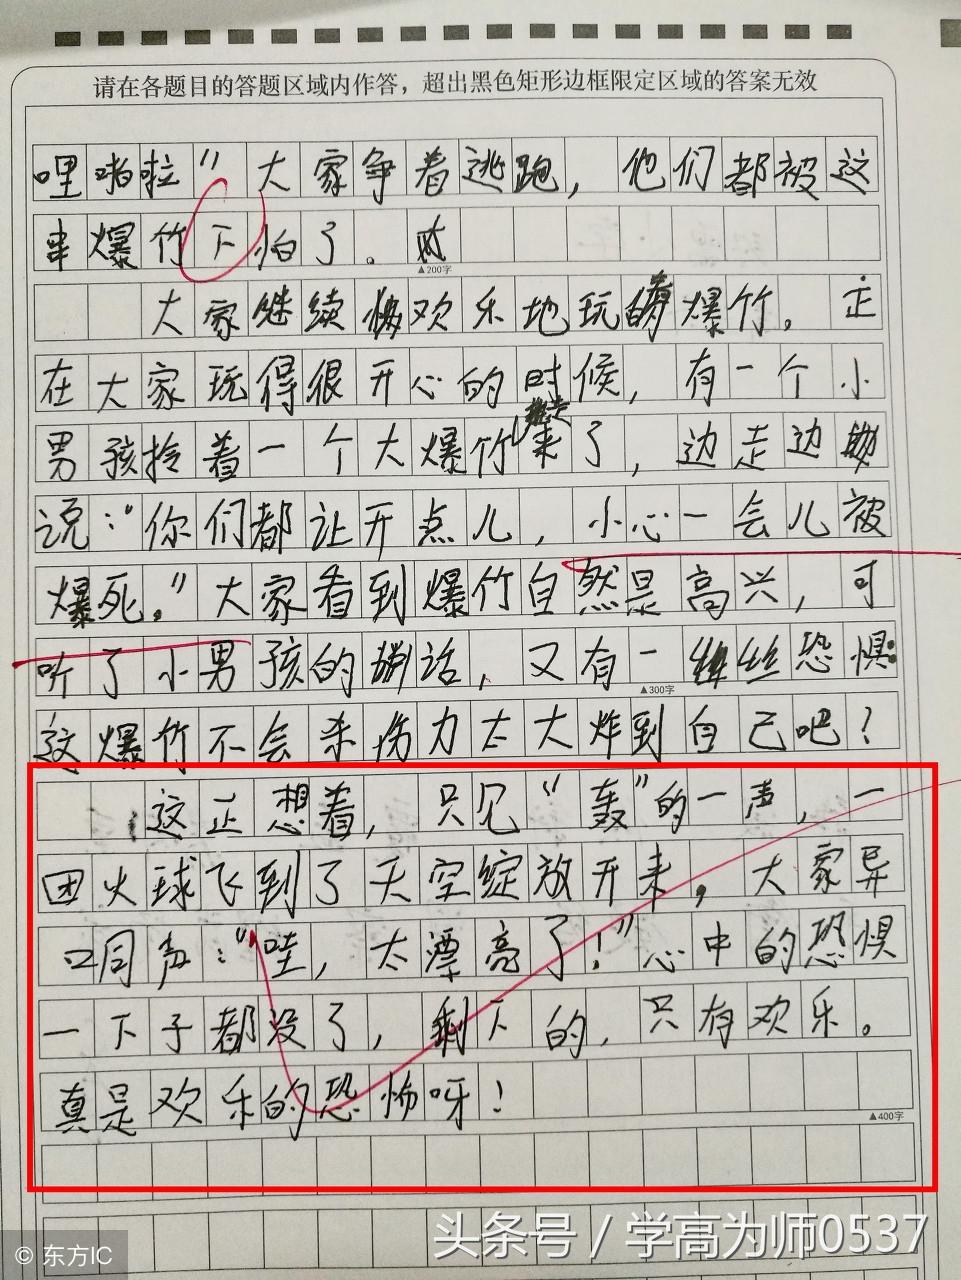 请在各题目的答题区域内作答，超出黑色矩形边框限定区域的答案无效
哩啪啦”大家争着逃跑，他们都被这
串爆竹下怕了。
▲200字
大家继续欢乐地玩着爆竹。正
在大家玩得很开心的时候，有一个小
男孩拎着一个大爆竹走来了，边走边
说：“你们都让开点儿，小心一会儿被
爆死。”大家看到爆竹自然是高兴，可
听了小男孩的话，又有一丝丝恐惧：
▲300字
这爆竹不会杀伤力太大炸到自己吧？
这正想着，只见“轰”的一声，一
团火球飞到了天空绽放开来，大家异
口同声：“哇，太漂亮了！”心中的恐惧
一下子都没了，剩下的，只有欢乐。
真是欢乐的恐怖呀！
▲400字
头条号／学高为师0537
© 东方IC